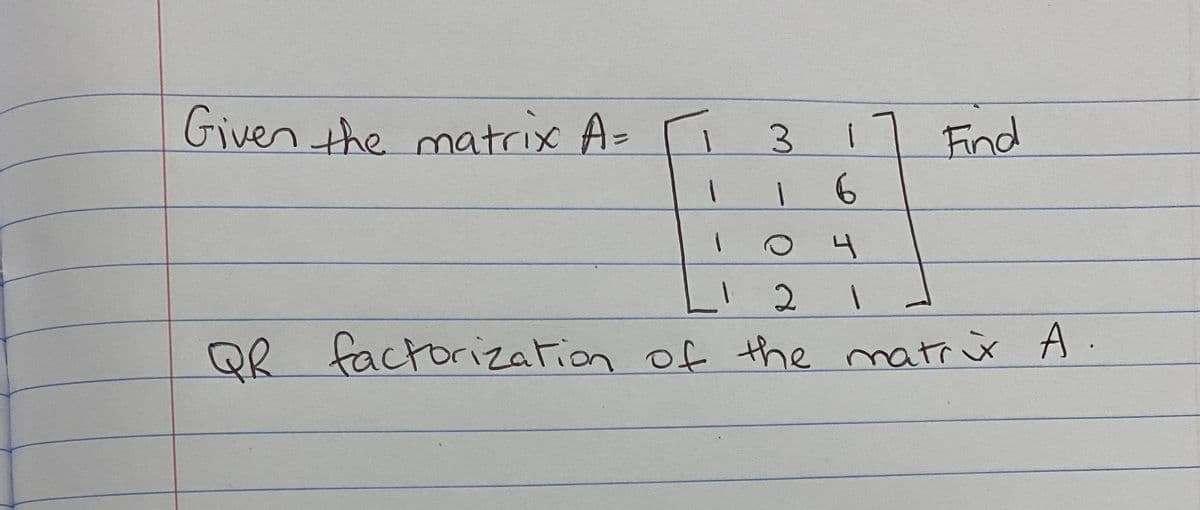 Given the matrix A= [ 1 3 1 ] Find
1 1 6
1 0 4
1 2 1
QR factorization of the matrix A.